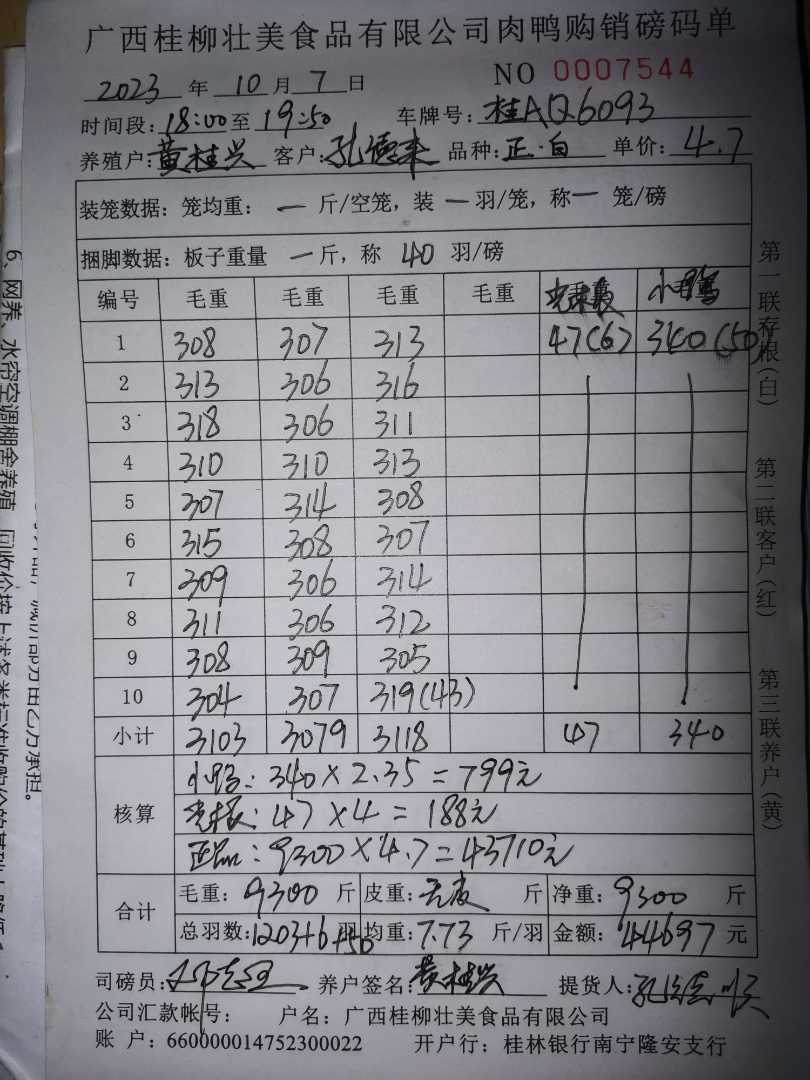 广西桂柳壮美食品有限公司肉鸭购销磅码单
2023 年 10 月 7 日 NO 0007544
时间段:18:00至19:50 车牌号:桂AQ6093
养殖户:黄桂兴 客户:孔德来 品种:正·白 单价:4.7
装笼数据:笼均重: 一 斤/空笼,装 一 羽/笼,称 一 笼/磅
捆脚数据:板子重量 一 斤,称 40 羽/磅
编号 毛重 毛重 毛重 毛重 小鸭
1 308 307 313 47(6) 340(50)
2 313 306 316
3 318 306 311
4 310 310 313
5 307 314 308
6 315 308 307
7 309 306 314
8 311 306 312
9 308 309 305
10 304 307 319(43)
小计 3103 3079 3118 47 340
小鸭:340×2.35=799元
核算 :47×4=188元
正品:9300×4.7=43710元
合计 毛重:9300 斤 皮重:无皮 斤 净重:9300 斤
总羽数:1203+6+50 羽 均重:7.73 斤/羽 金额:44697 元
司磅员: 养户签名:黄桂兴 提货人:
公司汇款帐号: 户名:广西桂柳壮美食品有限公司
账 户:660000014752300022 开户行:桂林银行南宁隆安支行
第一联存根(白) 第二联客户(红) 第三联养户(黄)
6、网养、水帘空调棚舍养殖
减价部分由乙方承担。